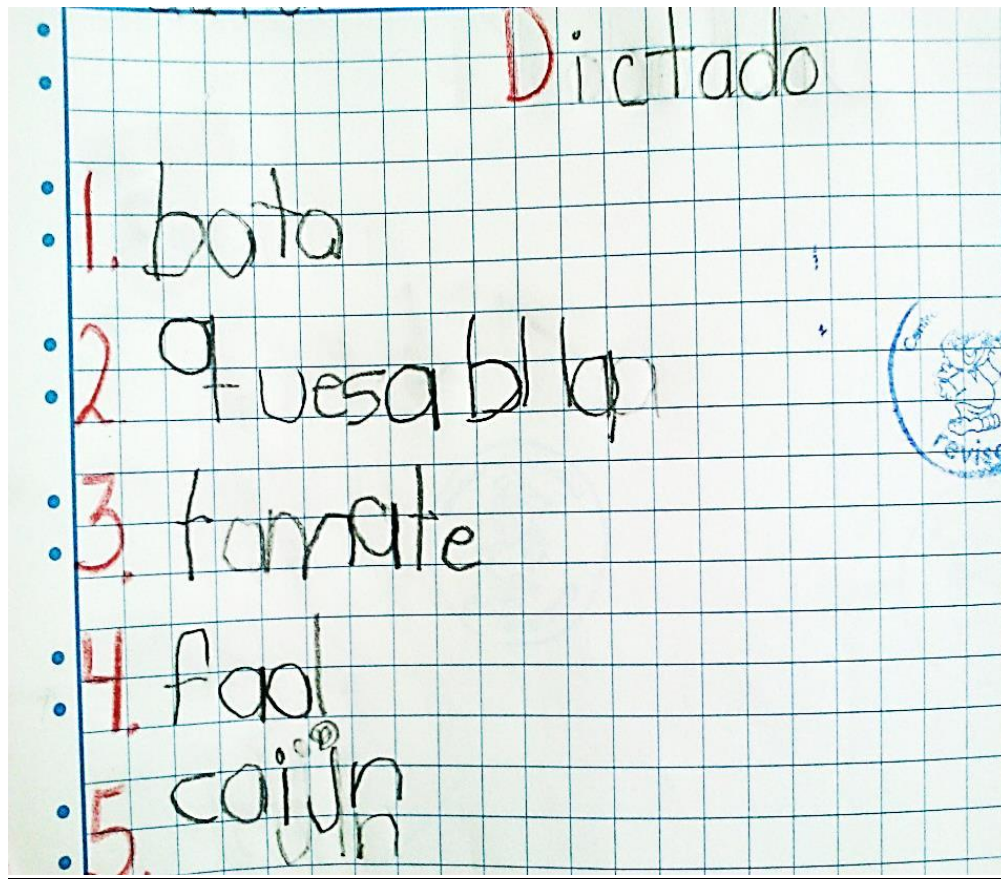 Dictado
1. bota
2. quesablla
3. tomate
4. faol
5. coijn
revisa